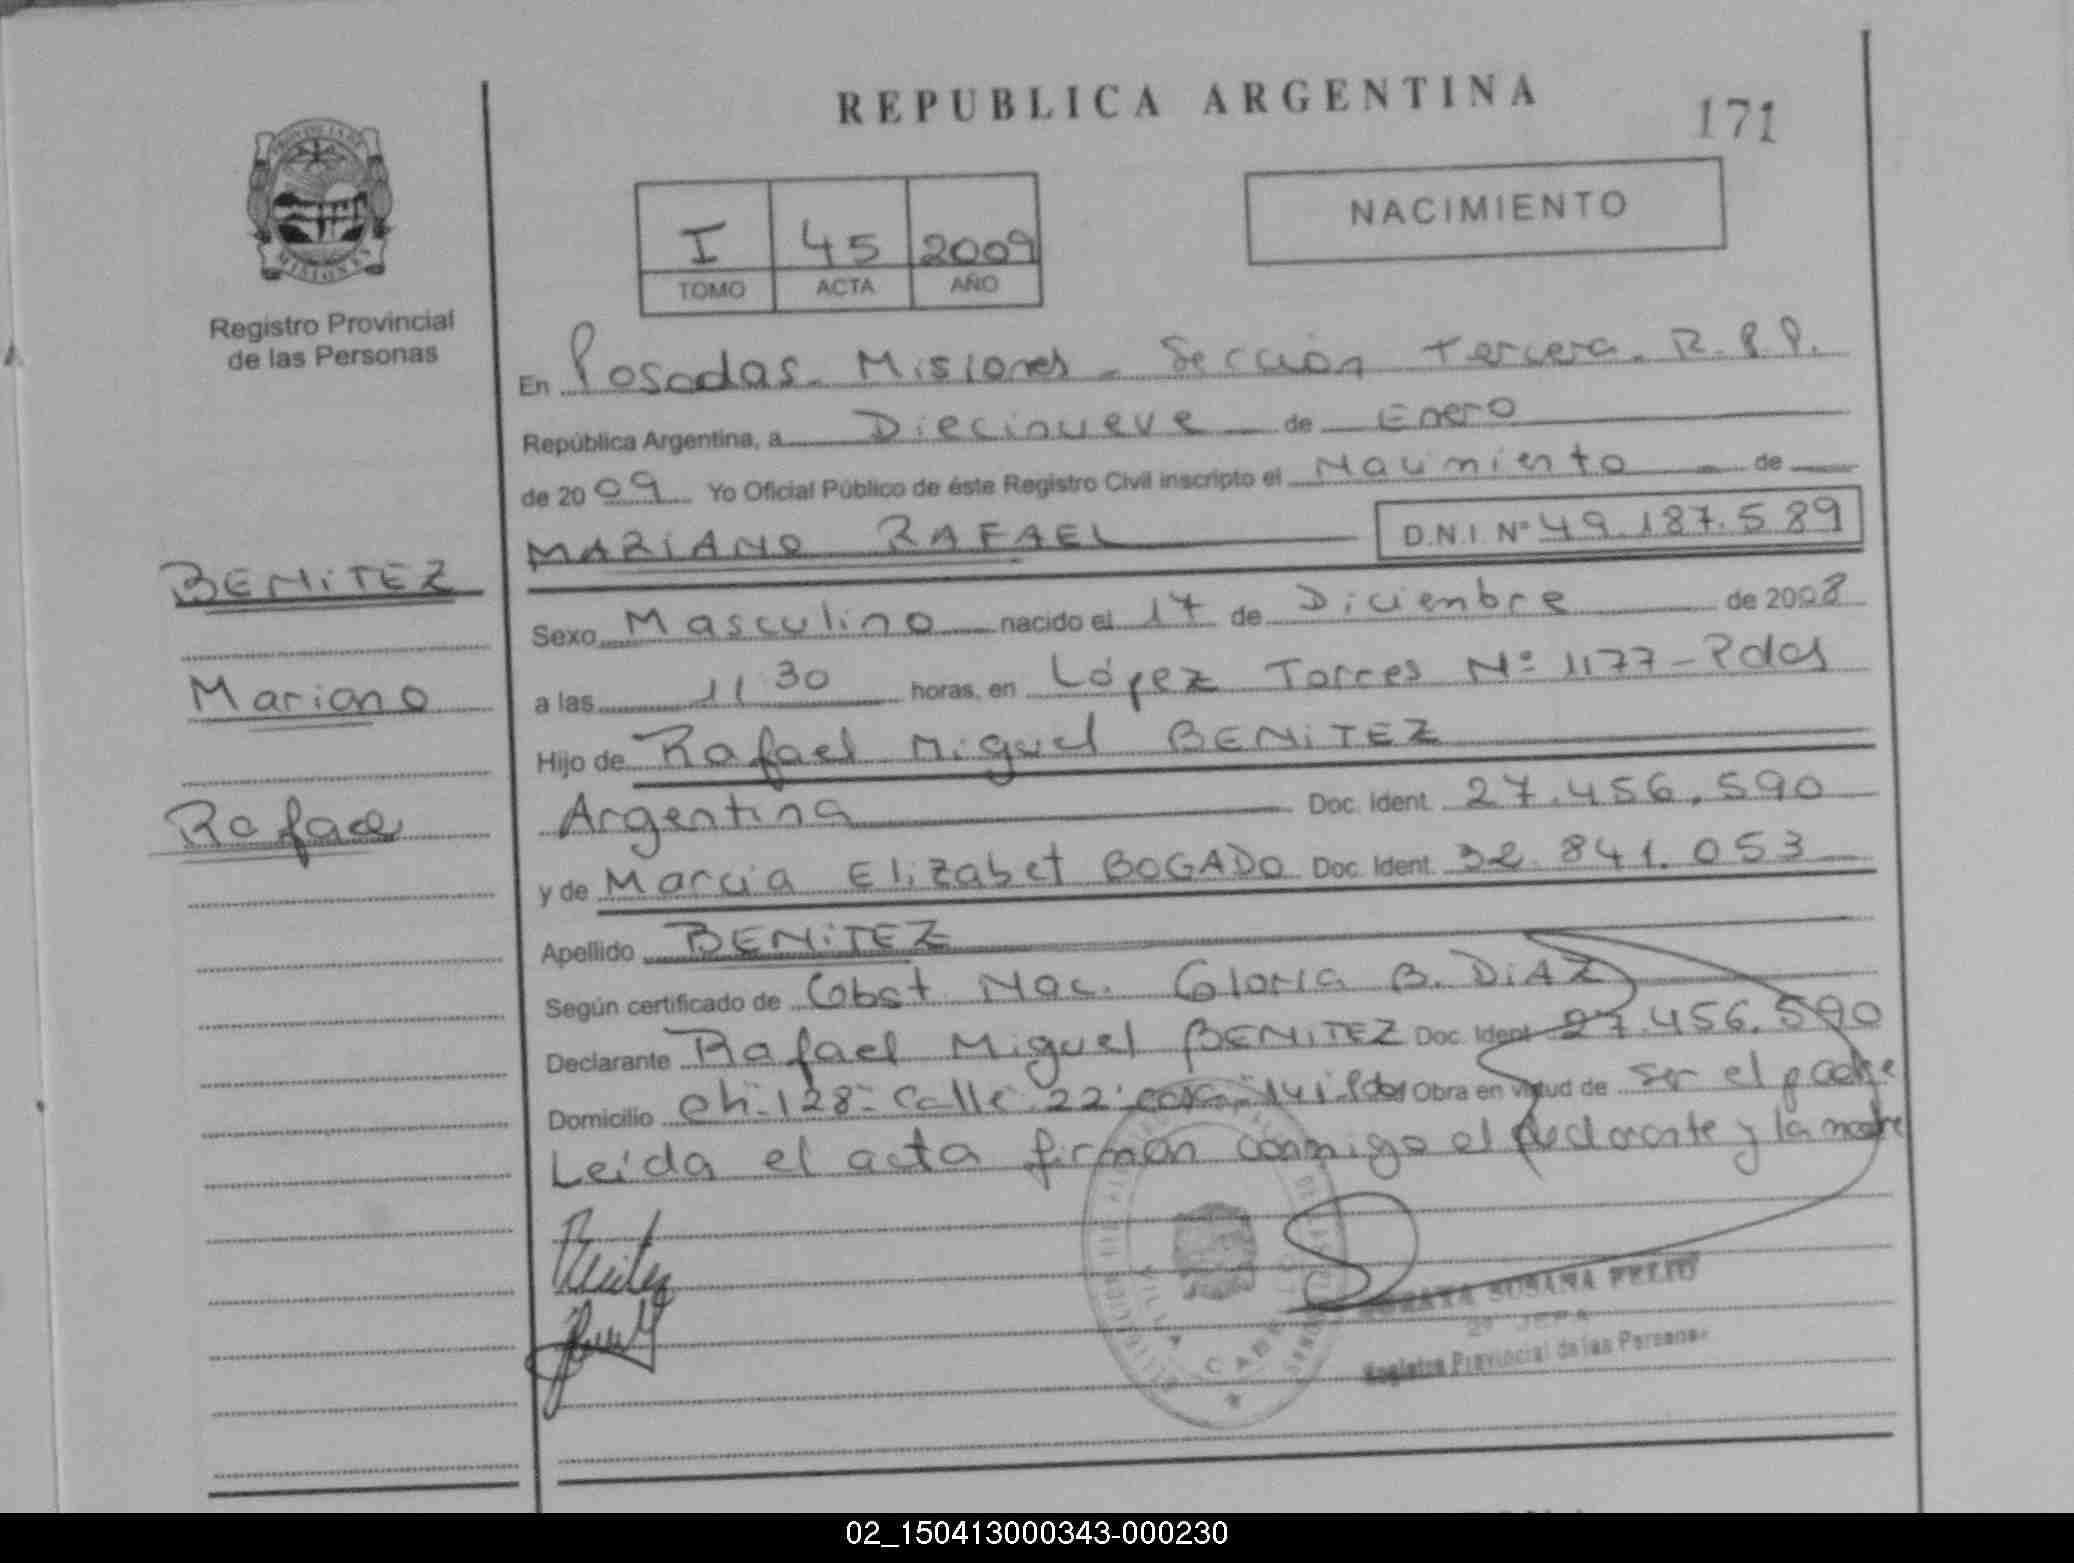 REPUBLICA ARGENTINA
171
I 45 2009
TOMO ACTA AÑO
NACIMIENTO
MISIONES
Registro Provincial
de las Personas
En Posadas - Misiones - Sección Tercera. R.P.P.
República Argentina, a Diecinueve de Enero
de 2009 Yo Oficial Público de éste Registro Civil inscripto el Nacimiento de
MARIANO RAFAEL D.N.I. Nº 49.187.589
BENITEZ
Mariano
Rafael
Sexo Masculino nacido el 17 de Diciembre de 2008
a las 11 30 horas, en López Torres Nº 1177 - Pdas
Hijo de Rafael Miguel BENITEZ
Argentina Doc. Ident. 27.456.590
y de Marcia Elizabet BOGADO Doc. Ident. 32.841.053
Apellido BENITEZ
Según certificado de Obst. Nac. Gloria B. DIAZ
Declarante Rafael Miguel BENITEZ Doc. Ident 27.456.590
Domicilio Ch. 128 - Calle 22 casa 141 Pdas Obra en virtud de ser el padre
Leida el acta firman conmigo el declarante y la madre
Benitez
VILLA CABE
SUSANA FELIU
2º JEFA
Registro Provincial de las Personas
02_150413000343-000230